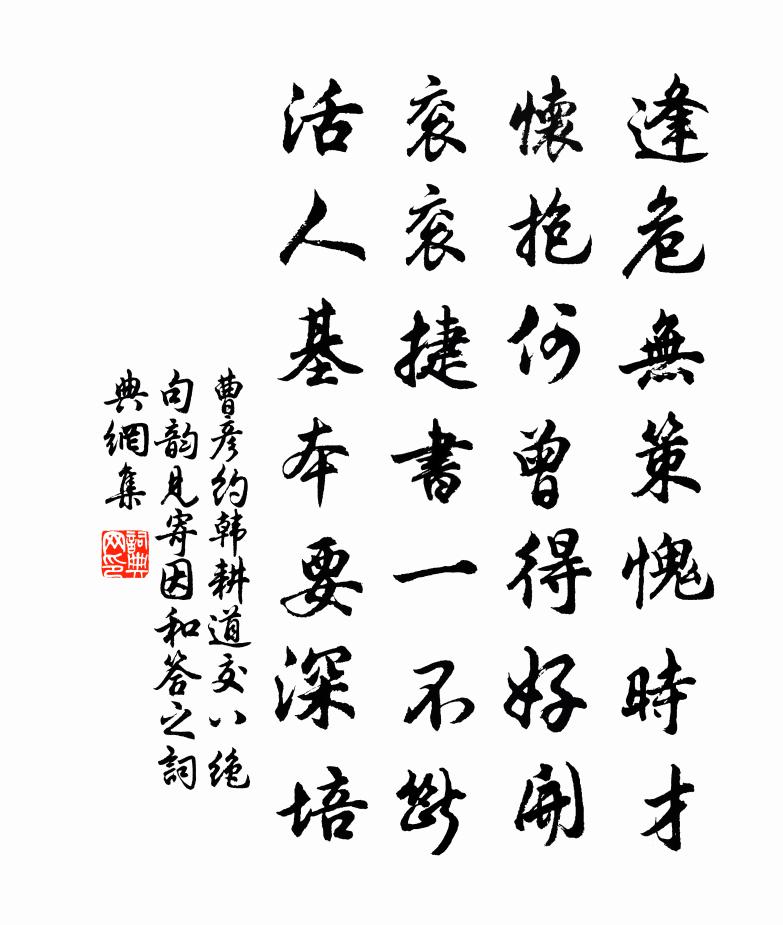 逢危無策愧時才
懷抱何曾得好開
衮衮捷書一不斷
活人基本要深培
曹彦約韩耕道交八绝
句韵見寄因和答之詞
典網集
詞典
网印